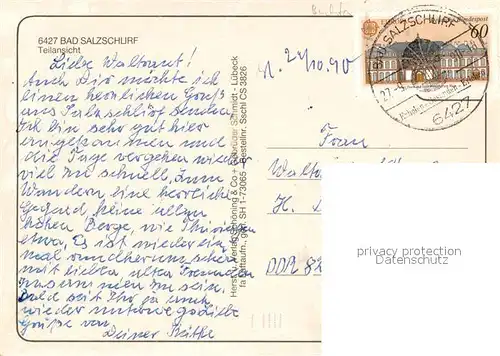 6427 BAD SALZSCHLIRF
Teilansicht
Liebe Waltraut!
Auch Dir möchte ich
einen herzlichen Gruß
aus Salzschlirf senden.
Ich bin sehr gut hier
angekommen und
die Tage vergehen wieder
viel zu schnell. Zum
Wandern eine herrliche
Gegend, keine allzu
hohen Berge, wie Thüringen
etwa. Es ist wieder ein-
mal rundherum schön
mit lieben alten Freunden
zusammen zu sein.
Bald seid Ihr ja auch
wieder
Grüße von
Deiner
Herst. u. Verlag Schöning & Co + Gebrüder Schmidt - Lübeck
fa Luftaufn., gen. SH 1-73065 Bestellnr. Sschl CS 3826
24/10.90
60
BAD SALZSCHLIRF
6427
Frau
DDR
privacy protection
Datenschutz